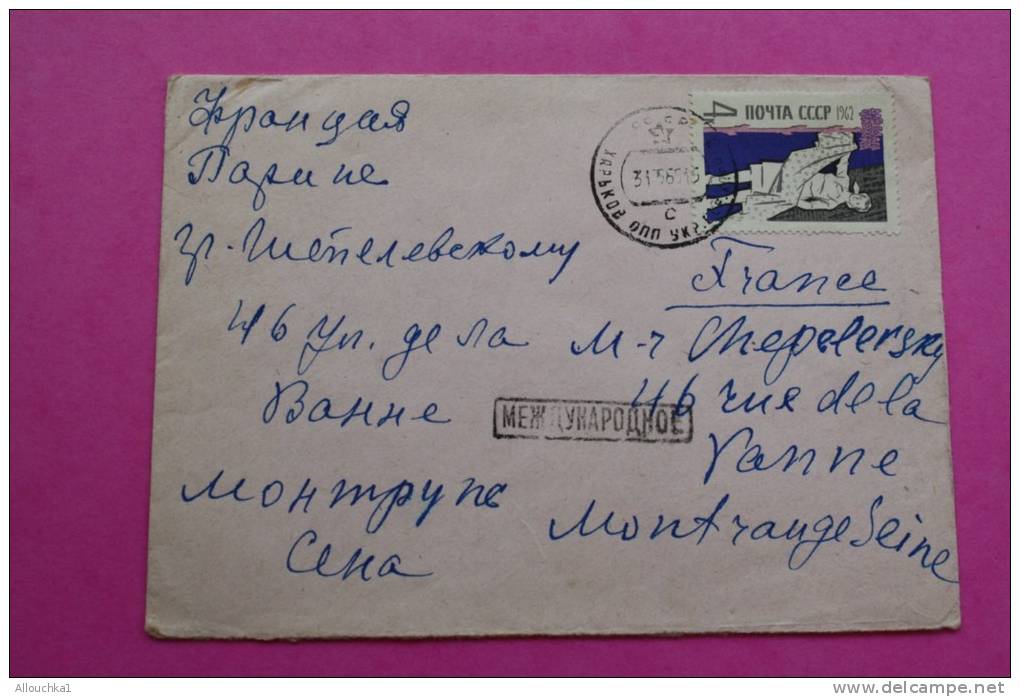 Франция
Париж
гр. Шепелевскому
46 ул. де ла
Ванне
Монтруж
Сена
4 ПОЧТА СССР 1962
ХАРЬКОВ
France
M-r Chepelevsky
46 rue de la
Vanne
Montrouge Seine
МЕЖДУНАРОДНОЕ
Allouchka1
www.delcampe.net